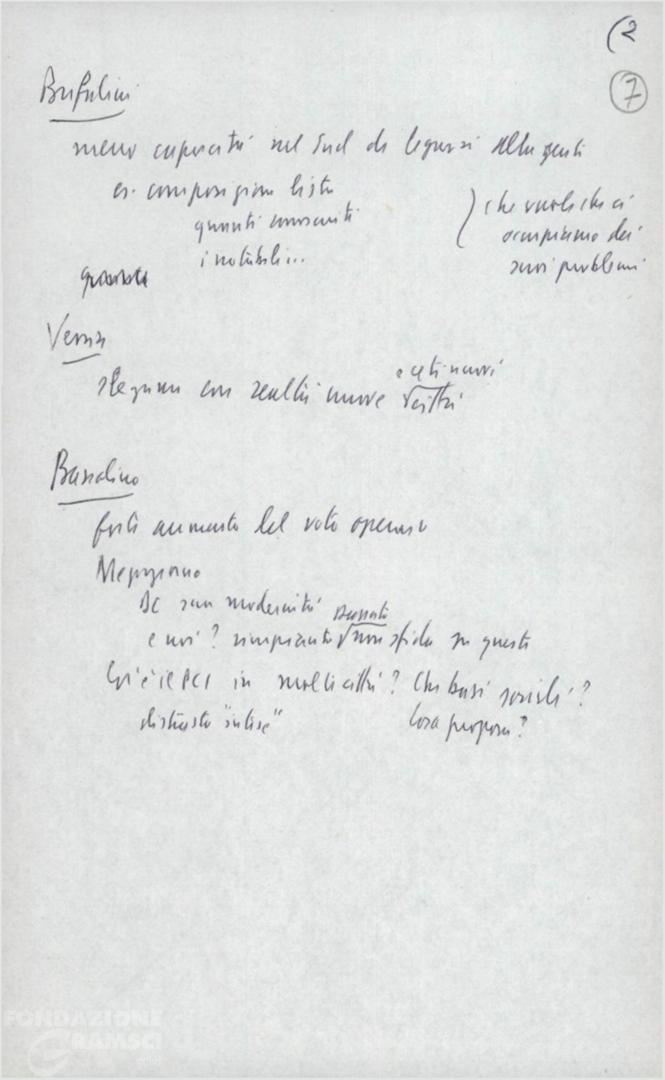 (2
7
Bufalini
meno capacità nel Sud di legarsi alla gente
es. composizione liste
quanti conosciuti
i notabili...
} che vuole che ci
occupiamo dei
suoi problemi
Verso
legame con realtà nuove e ceti nuovi
città
Bassolino
forte aumento del voto operaio
Mezzogiorno
DC sua modernità
e noi? rimpianto passato non sfida su questo
Cos'è il PCI in molte città? Che basi sociali?
distrutte "intese" Cosa propone?
FONDAZIONE
GRAMSCI